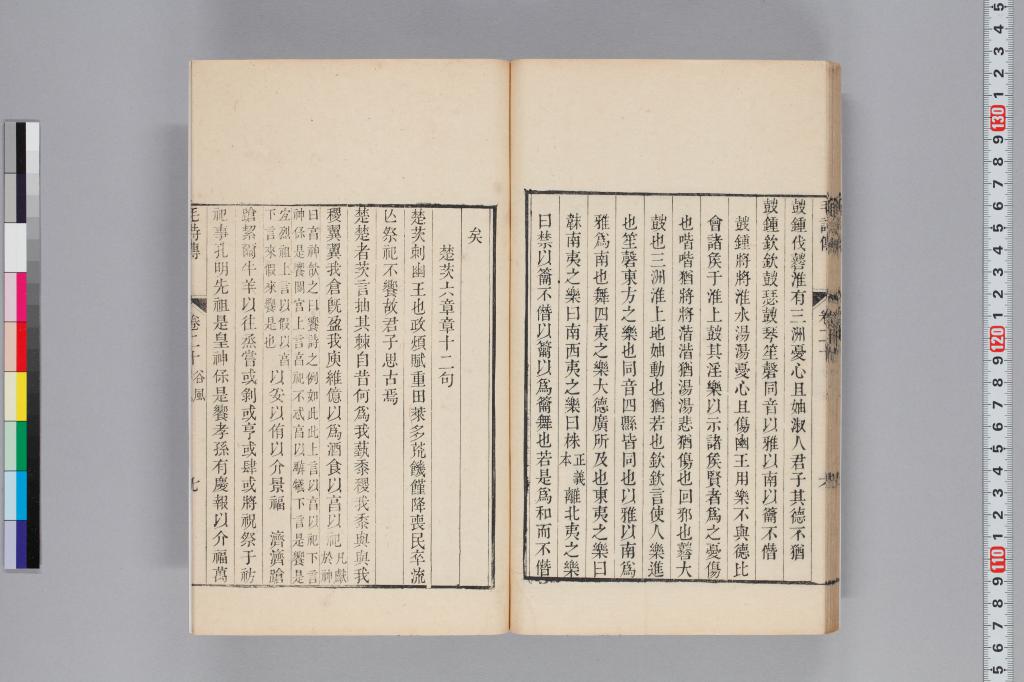 鼓鍾伐鼛淮有三洲憂心且妯淑人君子其德不猶
鼓鍾欽欽鼓瑟鼓琴笙磬同音以雅以南以籥不僭
鼓鍾將將淮水湯湯憂心且傷幽王用樂不與德比
會諸矦于淮上鼓其淫樂以示諸矦賢者為之憂傷
也喈喈猶將將湝湝猶湯湯悲猶傷也回邪也鼛大
鼓也三洲淮上地妯動也猶若也欽欽言使人樂進
也笙磬東方之樂也同音四縣皆同也以雅以南爲
雅爲南也舞四夷之樂大德廣所及也東夷之樂曰
韎南夷之樂曰南西夷之樂曰株
正義
本
離北夷之樂
曰禁以籥不僭以籥以爲籥舞也若是爲和而不僭
毛詩傳
卷二十
矣
楚茨六章章十二句
楚茨刺幽王也政煩賦重田萊多荒饑饉降喪民卒流
亾祭祀不饗故君子思古焉
楚楚者茨言抽其棘自昔何爲我蓺黍稷我黍與與我
稷翼翼我倉旣盈我庾維億以爲酒食以亯以祀
凡獻
於神
曰亯神歆之曰饗詩之例如此此上言以亯以祀下言
神保是饗閟宮上言亯祀不忒亯以騂犧下言是饗是
宐烈祖上言以假以亯
下言來假來饗是也
以妥以侑以介景福
濟濟蹌
蹌絜爾牛羊以往烝嘗或剝或亨或肆或將祝祭于祊
祀事孔明先祖是皇神保是饗孝孫有慶報以介福萬
毛詩傳
卷二十
谷風
七